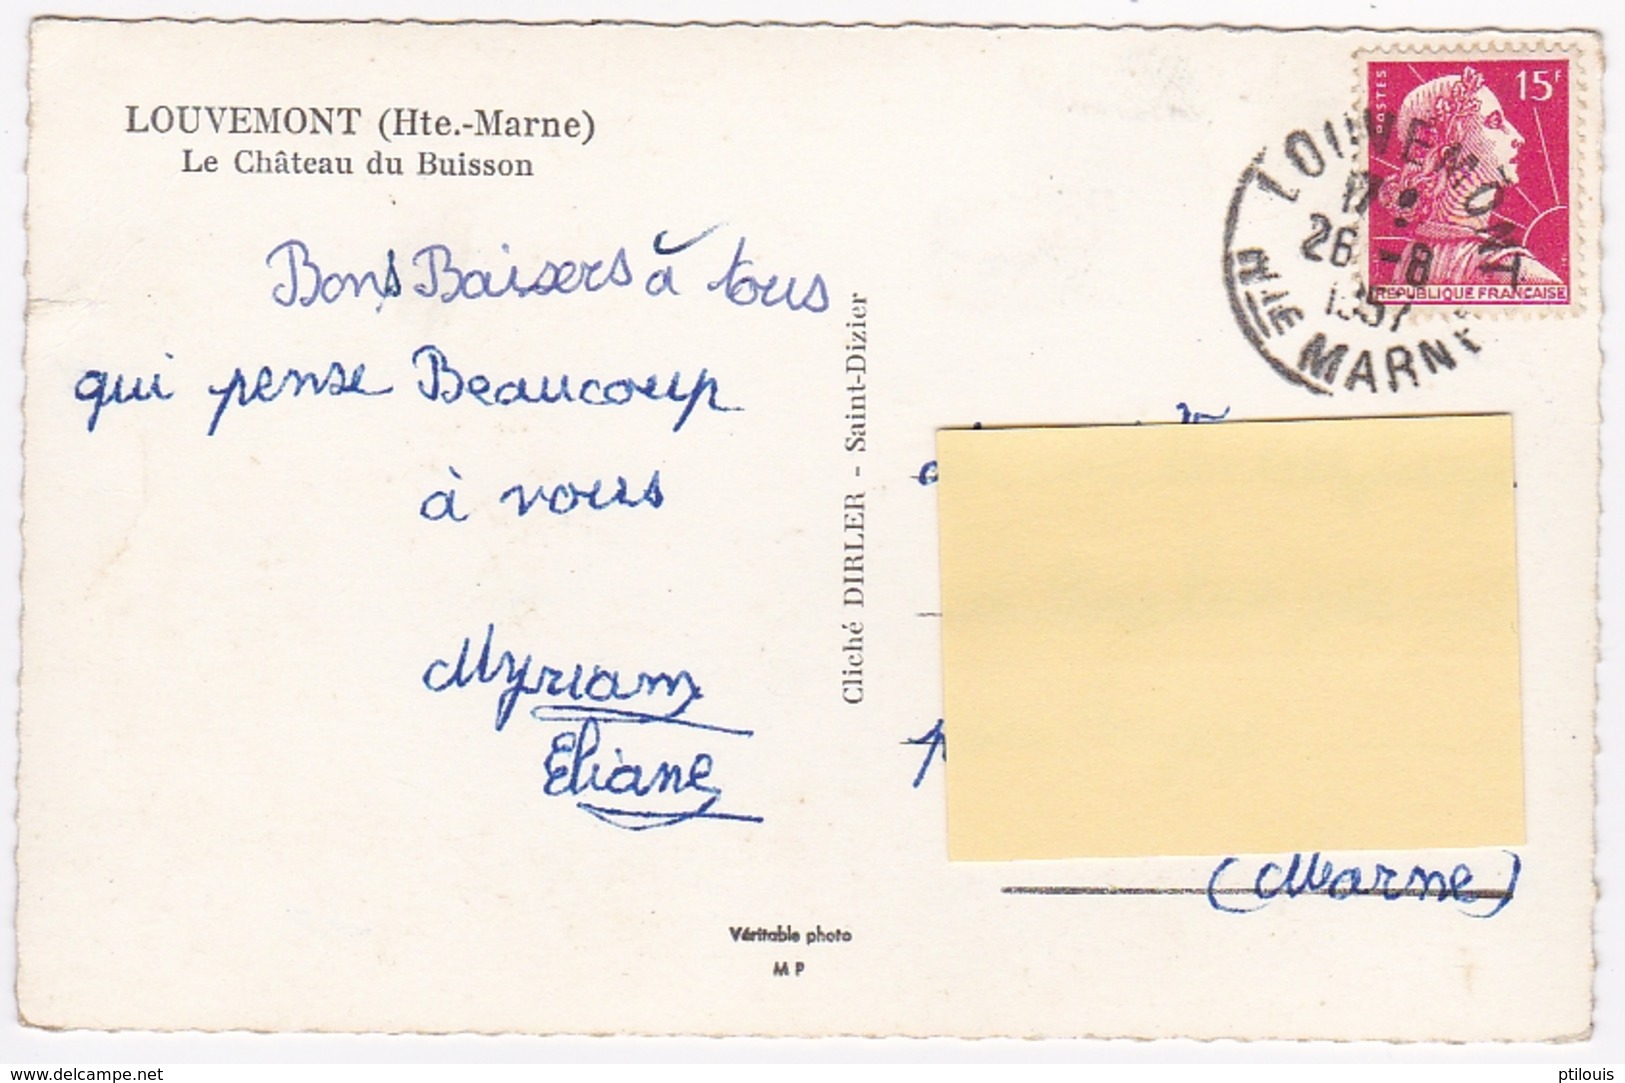 LOUVEMONT (Hte.-Marne)
Le Château du Buisson
Bons Baisers à tous
qui pense Beaucoup
à vous
Myriam
Eliane
Cliché DIRLER - Saint-Dizier
Véritable photo
M P
POSTES
15F
REPUBLIQUE FRANCAISE
LOUVEMONT
17
26 -8
1957
HTE MARNE
(Marne)
www.delcampe.net
ptilouis